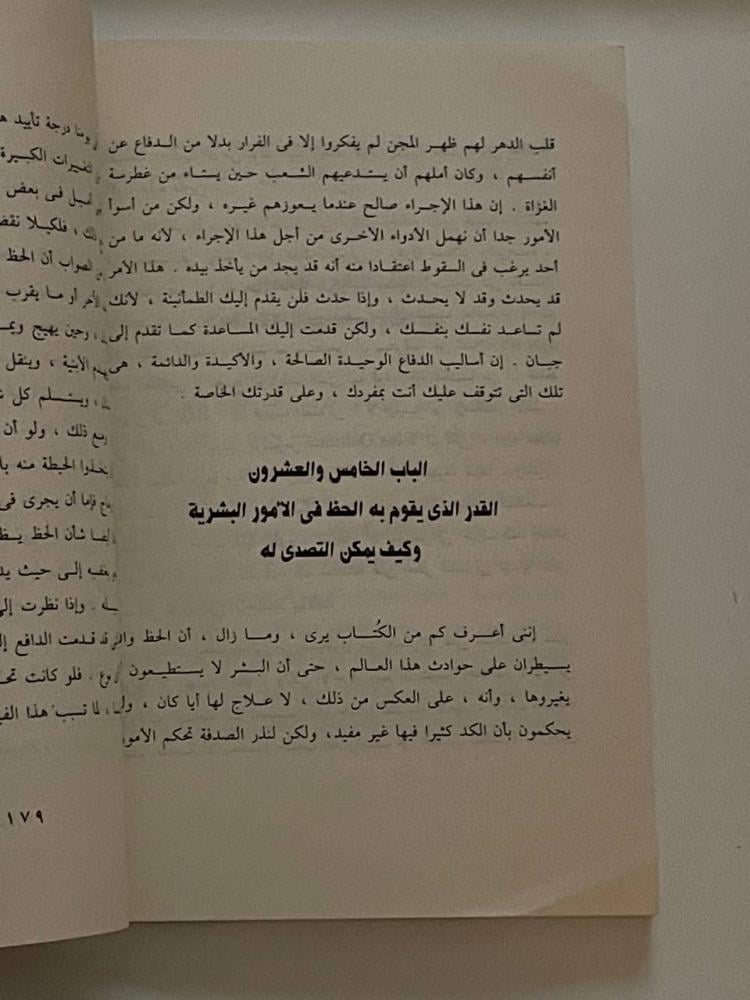 قلب الدهر لهم ظهر المجن لم يفكروا إلا فى الفرار بدلا من الدفاع عن
أنفسهم ، وكان أملهم أن يستدعيهم الشعب حين يستاء من غطرسة
الغزاة . إن هذا الإجراء صالح عندما يعوزهم غيره ، ولكن من أسوأ
الأمور جدا أن نهمل الأدواء الأخرى من أجل هذا الإجراء ، لأنه ما من
أحد يرغب فى السقوط اعتقادا منه أنه قد يجد من يأخذ بيده . هذا الأمر
قد يحدث وقد لا يحدث ، وإذا حدث فلن يقدم إليك الطمأنينة ، لأنك
لم تساعد نفسك بنفسك ، ولكن قدمت إليك المساعدة كما تقدم إلى
جبان . إن أساليب الدفاع الوحيدة الصالحة ، والأكيدة والدائمة ، هى
تلك التى تتوقف عليك أنت بمفردك ، وعلى قدرتك الخاصة .
الباب الخامس والعشرون
القدر الذى يقوم به الحظ فى الأمور البشرية
وكيف يمكن التصدى له
إننى أعرف كم من الكُتاب يرى ، وما زال ، أن الحظ
يسيطران على حوادث هذا العالم ، حتى أن البشر لا يستطيعون
يغيروها ، وأنه ، على العكس من ذلك ، لا علاج لها أيا كان ،
يحكمون بأن الكد كثيرا فيها غير مفيد، ولكن لنذر الصدفة تحكم
وما درجة تأييد
الكبيرة
فى بعض
، فلكيلا
الصواب أن الحظ
أو ما يقرب
، وحين يهيج
الأبنية ، وينقل
، ويستلم كل
ذلك ، ولو أن
الحيطة منه
أن يجرى فى
شأن الحظ
إلى حيث
. وإذا نظرت
قدمت الدافع
. فلو كانت
هذا
١٧٩